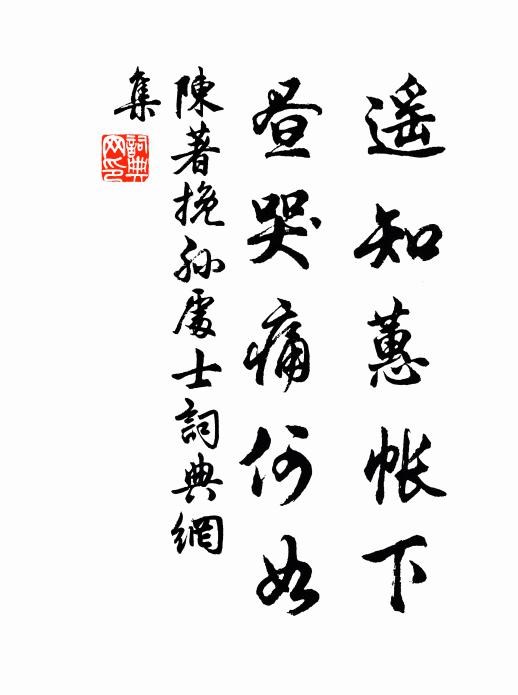 遥知蕙帐下
昼哭痛何如
陳著挽孫處士詞典網
集
詞典
网印